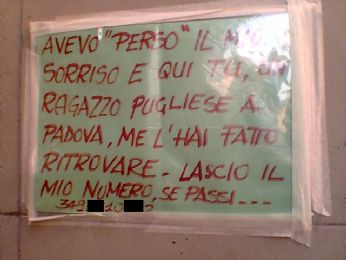 AVEVO "PERSO" IL MIO
SORRISO E QUI TU, UN
RAGAZZO PUGLIESE A
PADOVA, ME L'HAI FATTO
RITROVARE. LASCIO IL
MIO NUMERO, SE PASSI...
349 10